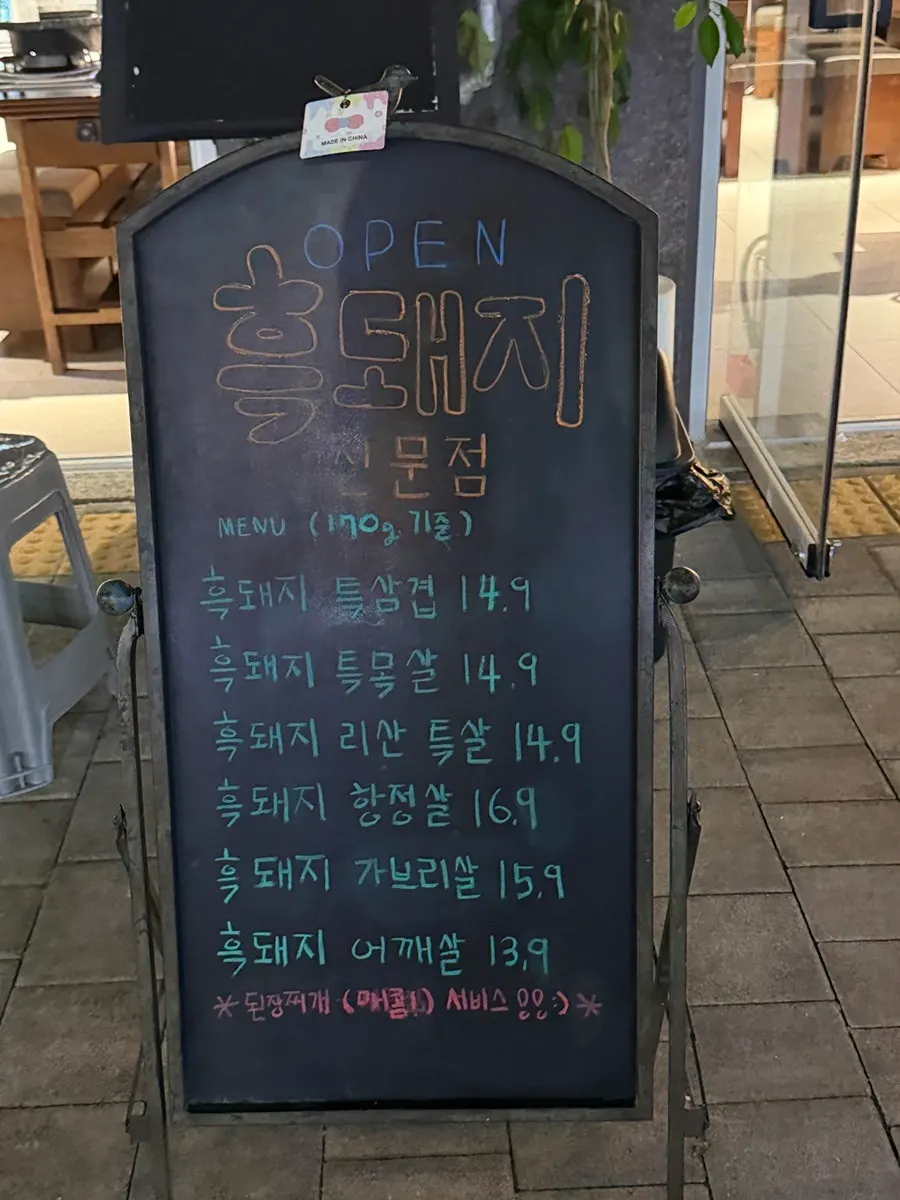 MADE IN CHINA
OPEN
흑돼지
전문점
MENU (170g 기준)
흑돼지 특삼겹 14.9
흑돼지 특목살 14.9
흑돼지 리산 특살 14.9
흑돼지 항정살 16.9
흑돼지 가브리살 15.9
흑돼지 어깨살 13,9
*된장찌개 (매콤!) 서비스 :) *